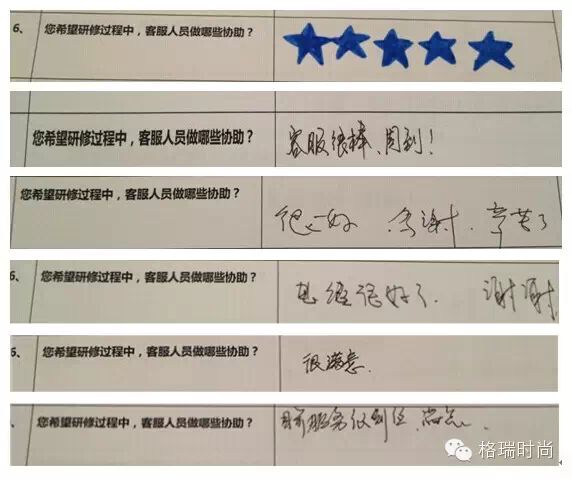 6、 您希望研修过程中，客服人员做哪些协助？
您希望研修过程中，客服人员做哪些协助？ 客服很棒、周到！
您希望研修过程中，客服人员做哪些协助？ 很好 多谢、辛苦了
6、 您希望研修过程中，客服人员做哪些协助？ 已经很好了. 谢谢
6、 您希望研修过程中，客服人员做哪些协助？ 很满意.
、 您希望研修过程中，客服人员做哪些协助？ 服务
格瑞时尚